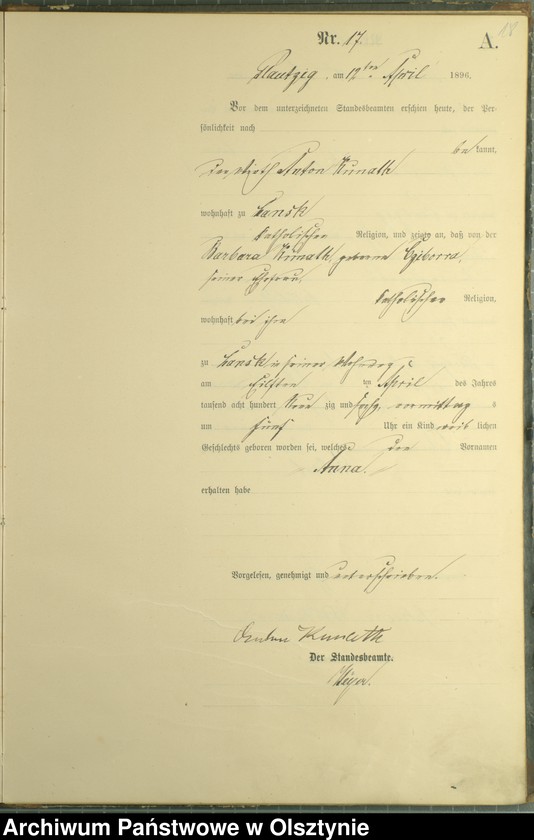 Nr. 17.
A.
18
Plautzig, am 12ten April 1896.
Vor dem unterzeichneten Standesbeamten erschien heute, der Per-
sönlichkeit nach
bekannt,
der Wirth Anton Kunath
wohnhaft zu Lansk
katholischer Religion, und zeigte an, daß von der
Barbara Kunath, geborene Cziborra,
seiner Ehefrau,
katholischer Religion,
wohnhaft bei ihm
zu Lansk in seiner Wohnung
am eilften im April des Jahres
tausend acht hundert neunzig und sechs, vormittags
um fünf Uhr ein Kind weiblichen
Geschlechts geboren worden sei, welches den Vornamen
Anna.
erhalten habe
Vorgelesen, genehmigt und unterschrieben.
Anton Kunath
Der Standesbeamte.
Archiwum Państwowe w Olsztynie